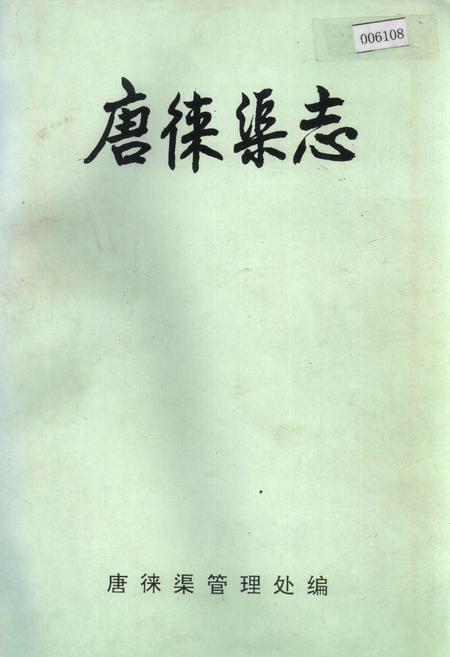 006108
唐徕渠志
唐徕渠管理处编